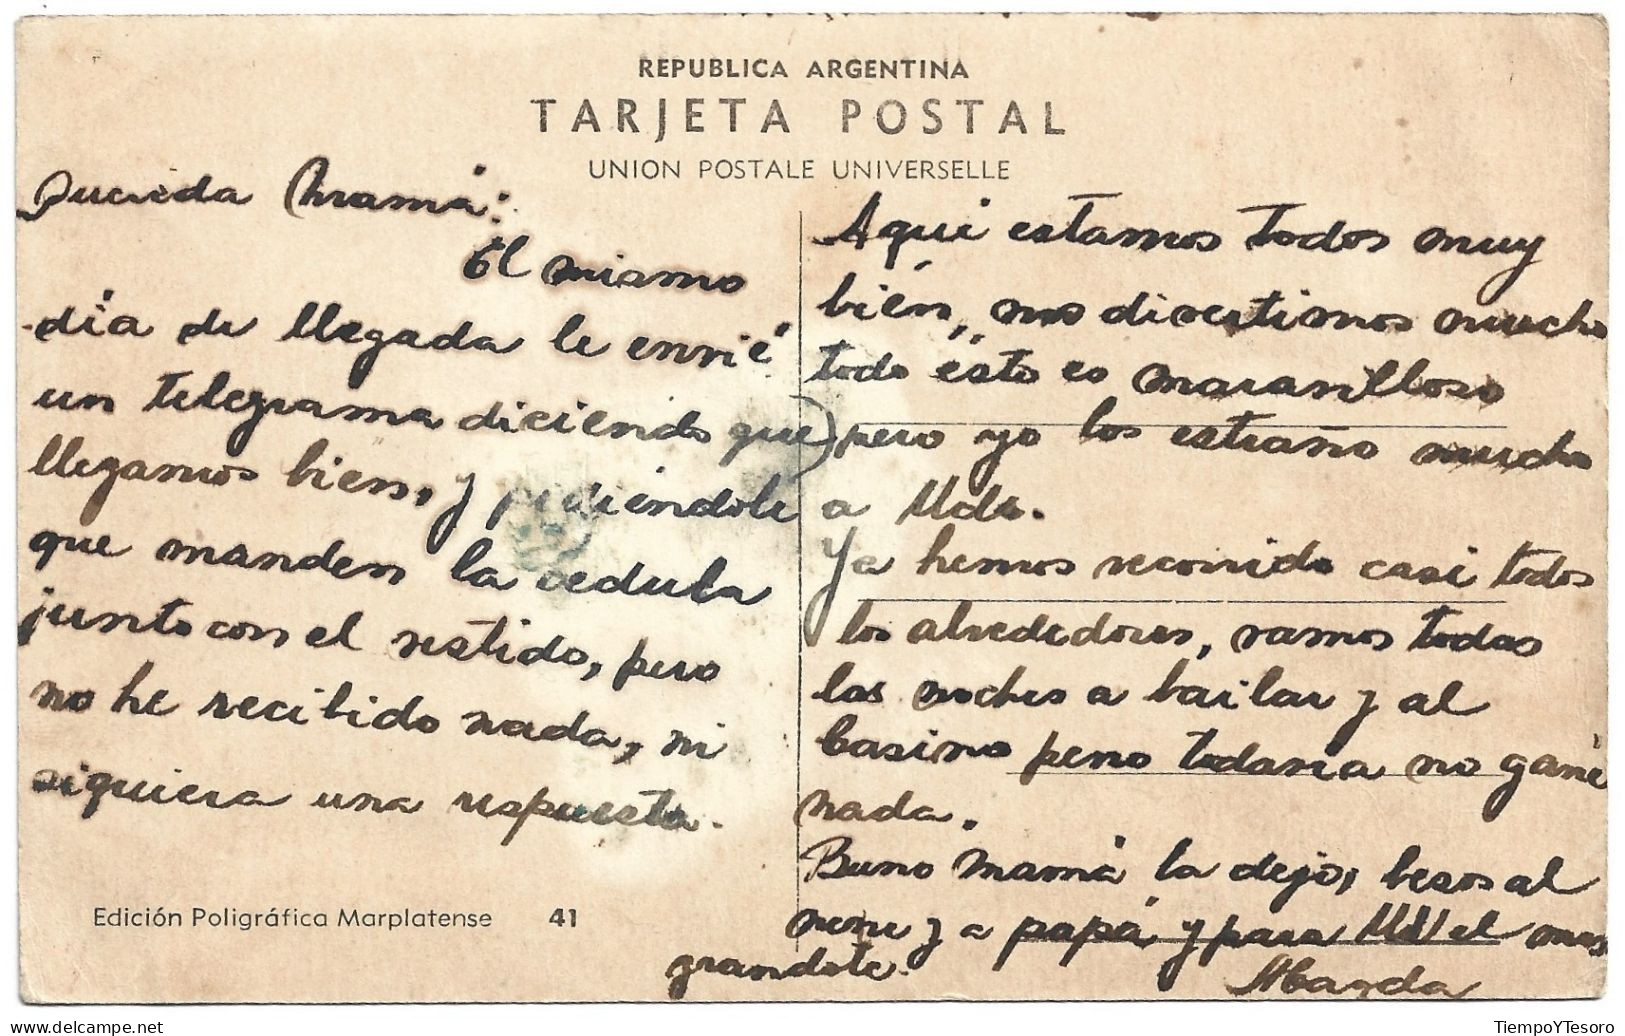 REPUBLICA ARGENTINA
TARJETA POSTAL
UNION POSTALE UNIVERSELLE
Querida Mamá:
El mismo
día de llegada le envié
un telegrama diciendo que
llegamos bien, y pidiéndole
que manden la cedula
junto con el vestido, pero
no he recibido nada, ni
siquiera una respuesta.
Edición Poligráfica Marplatense 41
Aquí estamos todos muy
bién, nos divertimos mucho
todo ésto es maravilloso
pero yo los estraño mucho
a Uds.
Ya hemos recorrido casi todos
los alrededores, vamos todas
las noches a bailar y al
Casino pero todavia no gané
nada.
Bueno Mamá la dejo, besos al
nene y a papá, y para Ud el mas
grandote.
TiempoYTesoro